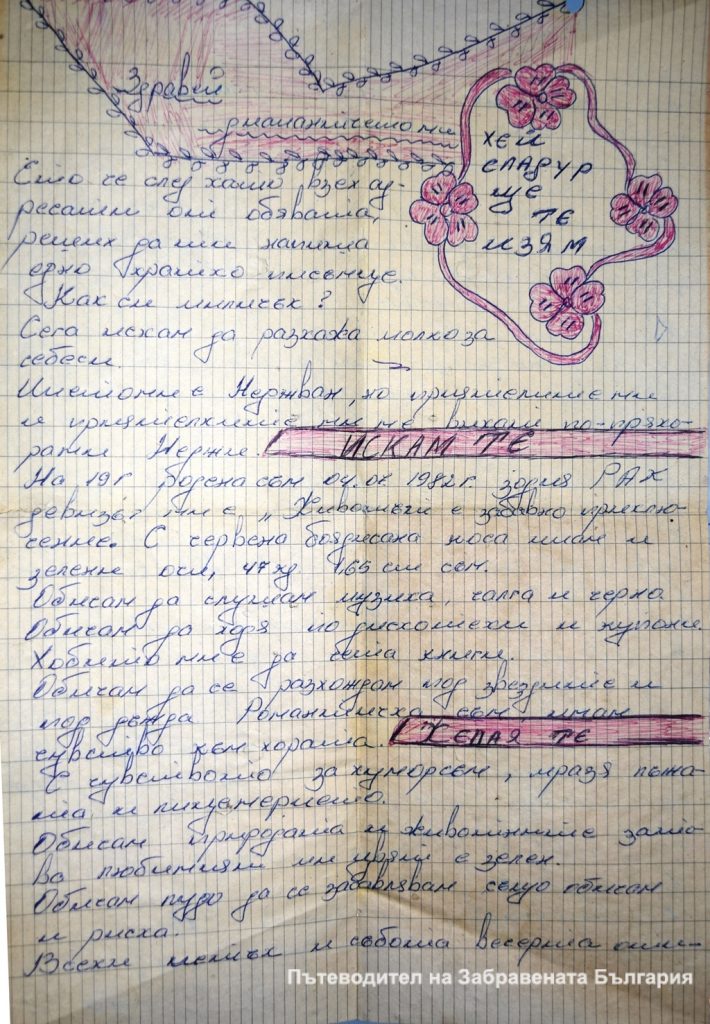 Здравей
диамантчето ми
ХЕЙ
СЛАДУР
ЩЕ
ТЕ
ИЗЯМ
Ето че след като взех ад-
ресът от обявата,
реших да ти напиша
едно кратко писъмце.
Как си миличък?
Сега искам да разкажа малко за
себеси.
Името ми е Нержван, но приятелите ми
и приятелките ми ме викат по-прякo-
ратки Нержи.
ИСКАМ ТЕ
На 19г. родена съм 04.07.1982г. зодия РАК
девизът ми е „Животът е забавно приклю-
чение. С червена боядисана коса имам и
зелени очи, 47кг 1,65 см съм.
Обичам да слушам музика, чалга и черна
Обичам да ходя по дискотеки и купони.
Хобито ми е да чета книги.
Обичам да се разхождам под звездите и
под дъжда Романтичка съм, имам
чувство към хората.
ЖЕЛАЯ ТЕ
С чувството за хуморсъм, мразя лъжа-
та, и лицемерието.
Обичам природата и животните зато-
ва любимият ми цвят е зелен.
Обичам лудо да се забавлявам също обичам
и риска.
Всеки петък и събота вечерта оти-
Пътеводител на Забравената България